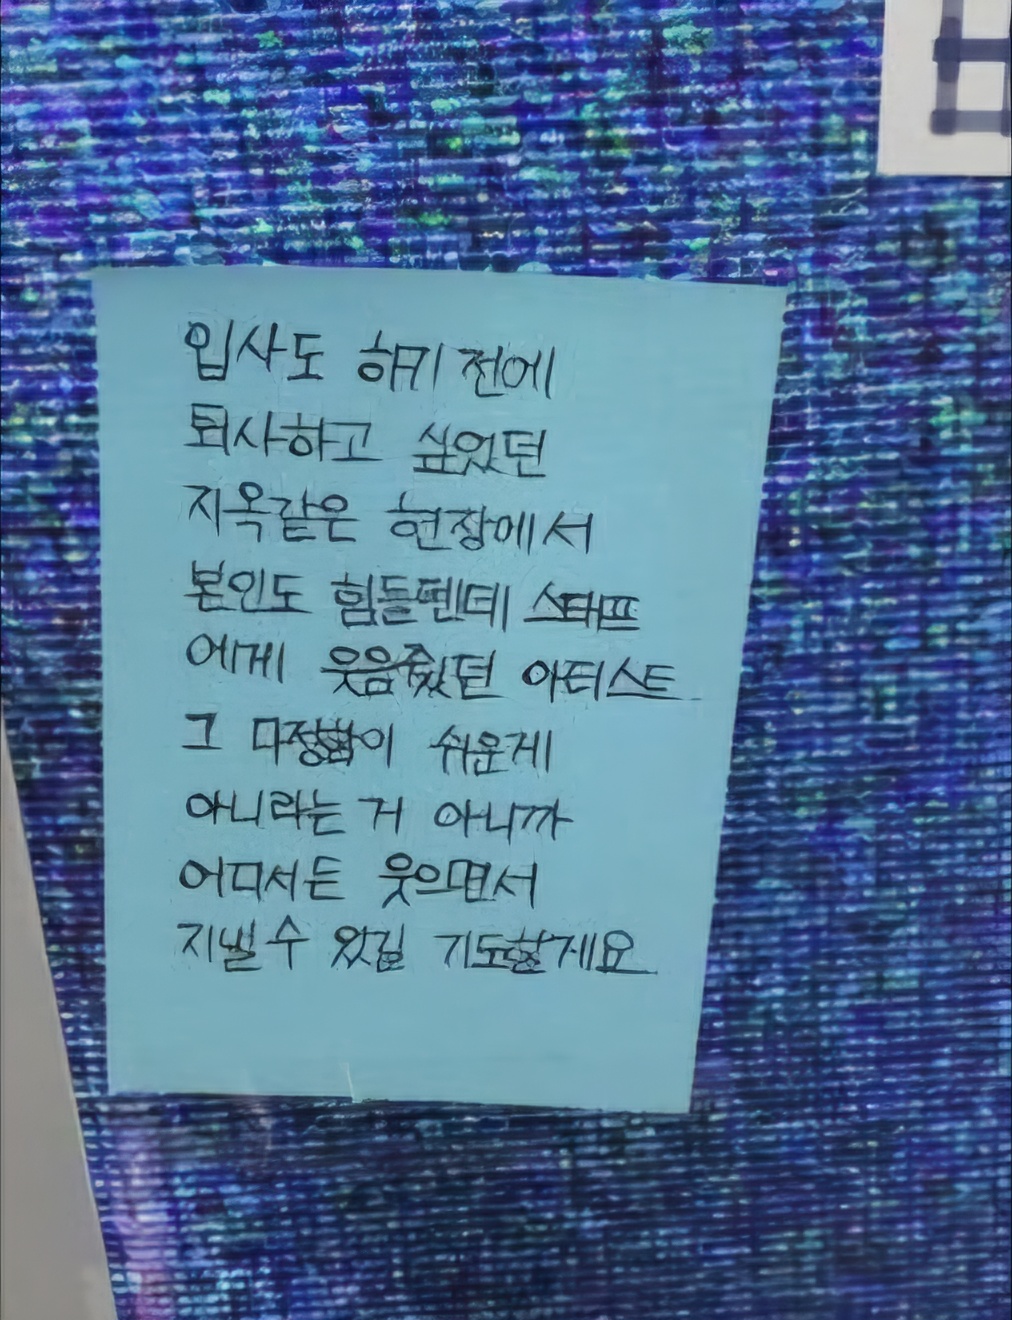 입사도 하기 전에
퇴사하고 싶었던
지옥같은 현장에서
본인도 힘들텐데 스태프
에게 웃음줬던 아티스트
그 다정함이 쉬운게
아니라는 거 아니까
어디서든 웃으면서
지낼 수 있길 기도할게요